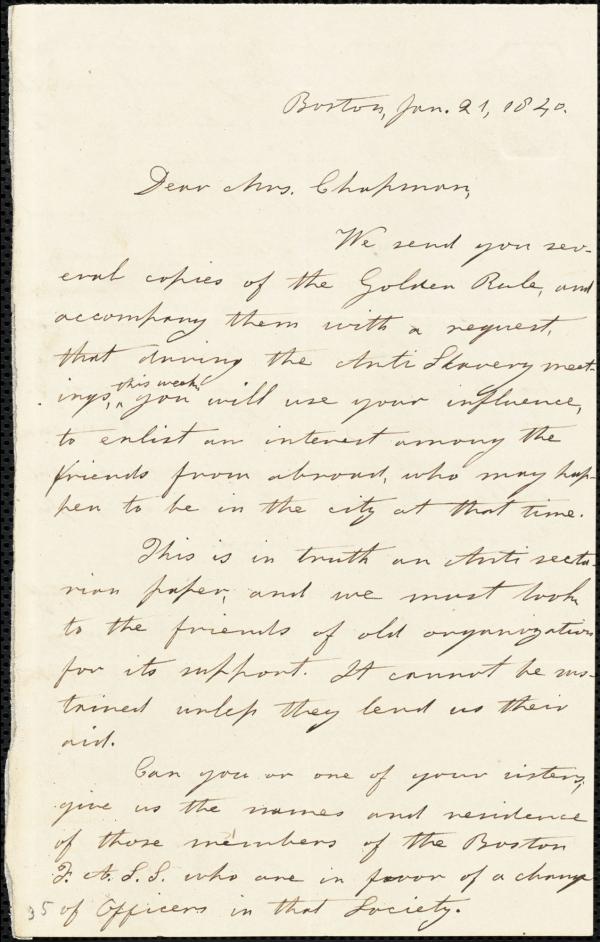 Boston, Jan. 21, 1840.
Dear Mrs. Chapman,
We send you sev-
eral copies of the Golden Rule, and
accompany them with a request,
that during the Anti Slavery meet-
ings, this week, you will use your influence,
to enlist an interest among the
friends from abroad, who may hap-
pen to be in the city at that time.
This is in truth an Anti secta
rian paper, and we must look
to the friends of old organization
for its support. It cannot be sus-
tained unless they lend us their
aid.
Can you or one of your sisters,
give us the names and residence
of those members of the Boston
F. A. S. S. who are in favor of a change
of Officers in that Society.
35